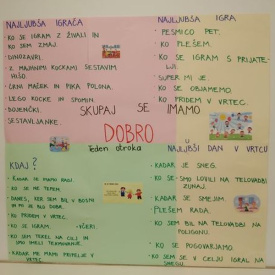 NAJLJUBŠA IGRAČA
KO SE IGRAM Z ŽIVALI IN
KO SEM ZMAJ.
DINOZAVRI.
Z MAJHNIMI KOCKAMI SESTAVIM
HIŠO
ČRNI MAČEK IN PIKA POLONA.
LEGO KOCKE IN SPOMIN.
SESTAVLJANKE.
NAJLJUBŠA IGRA
PESMICO PET.
KO PLEŠEM.
KO SE IGRAM S PRIJATE-
LJI.
SUPER MI JE
KO SE OBJAMEMO.
KO PRIDEM V VRTEC.
SKUPAJ SE IMAMO
DOBRO
Teden otroka
KDAJ?
KADAR SE IMAMO RADI.
KO SE NE TEPEM.
DANES, KER SEM BIL V BOSNI
IN MI JE BILO DOBRO.
KO PRIDEM V VRTEC.
KO SE IGRAM.
KO SEM TEKEL NA CILJ IN
SMO IMELI TEKMOVANJE.
KADAR ME MAMI PRIPELJE V
VRTEC.
NAJLJUBŠI DAN V VRTCU
KADAR JE SNEG.
KO SMO LOVILI NA TELOVADBI
ZUNAJ.
KADAR SE SMEJIM.
PLEŠEM RADA.
KO SEM BIL NA TELOVADBI NA
POLIGONU.
KO SE POGOVARJAMO
KO SEM SE V CELJU IGRAL NA
SNEGU.